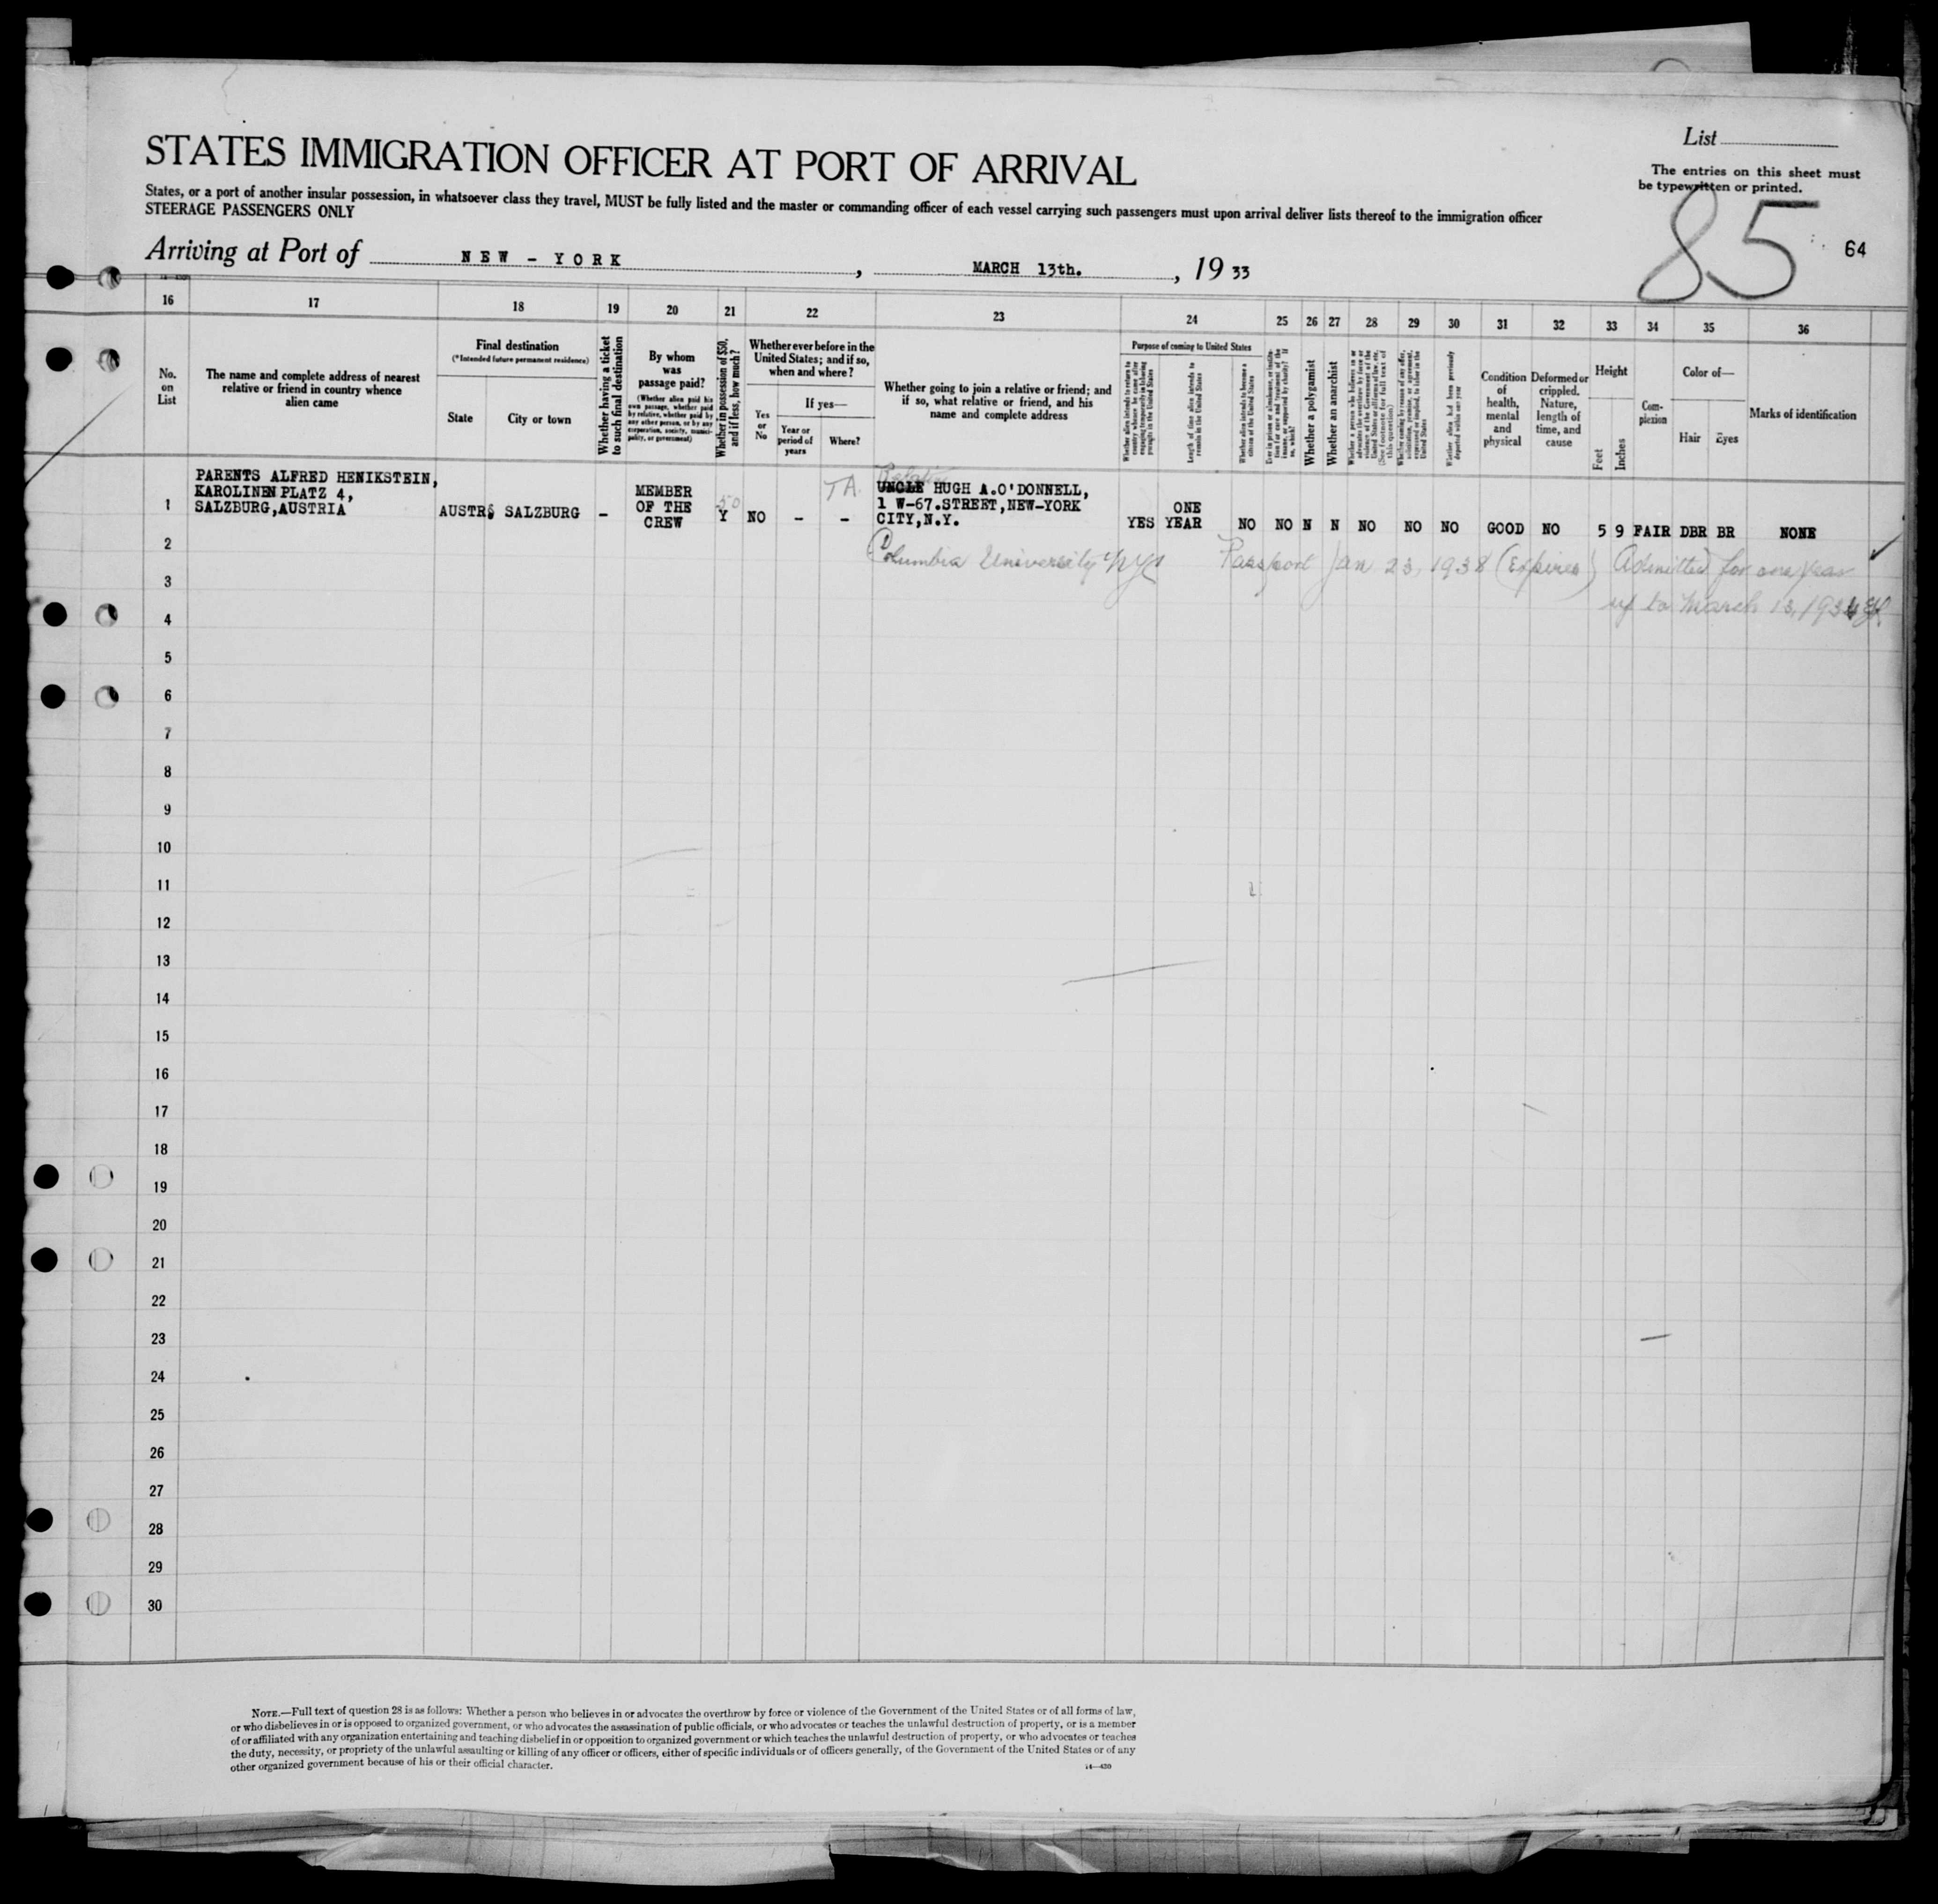 STATES IMMIGRATION OFFICER AT PORT OF ARRIVAL
States, or a port of another insular possession, in whatsoever class they travel, MUST be fully listed and the master or commanding officer of each vessel carrying such passengers must upon arrival deliver lists thereof to the immigration officer
STEERAGE PASSENGERS ONLY
List
The entries on this sheet must
be typewritten or printed.
85
64
Arriving at Port of NEW - YORK, MARCH 13th., 19 33
16 17 18 19 20 21 22 23 24 25 26 27 28 29 30 31 32 33 34 35 36
No.
on
List
The name and complete address of nearest
relative or friend in country whence
alien came
Final destination
(*Intended future permanent residence)
State
City or town
Whether having a ticket
to such final destination
By whom
was
passage paid?
(Whether alien paid his
own passage, whether paid
by relative, whether paid by
any other person, or by any
corporation, society, munici-
pality, or government)
Whether in possession of $50,
and if less, how much?
Whether ever before in the
United States; and if so,
when and where?
Yes
or
No
If yes—
Year or
period of
years
Where?
Whether going to join a relative or friend; and
if so, what relative or friend, and his
name and complete address
Purpose of coming to United States
Whether alien intends to return to
country whence he came after
engaging temporarily in laboring
pursuits in the United States
Length of time alien intends to
remain in the United States
Whether alien intends to become a
citizen of the United States
Ever in prison or almshouse, or institu-
tion for care and treatment of the
insane, or supported by charity? If
so, which?
Whether a polygamist
Whether an anarchist
Whether a person who believes in or
advocates the overthrow by force or
violence of the Government of the
United States or all forms of law, etc.
(See footnote for full text of
this question)
Whether coming by reason of any offer,
solicitation, promise, or agreement,
expressed or implied, to labor in the
United States
Whether alien had been previously
deported within one year
Condition
of
health,
mental
and
physical
Deformed or
crippled.
Nature,
length of
time, and
cause
Height
Feet
Inches
Com-
plexion
Color of—
Hair
Eyes
Marks of identification
1
PARENTS ALFRED HENIKSTEIN,
KAROLINEN PLATZ 4,
SALZBURG,AUSTRIA
AUSTR. SALZBURG -
MEMBER
OF THE
CREW
50
Y NO - -
TA.
Relative
UNCLE HUGH A.O'DONNELL,
1 W-67.STREET,NEW-YORK
CITY,N.Y.
YES ONE
YEAR
NO NO N N NO NO NO GOOD NO 5 9 FAIR DBR BR NONE
Columbia University NYC Passport Jan 23, 1938 (Expires) Admitted for one year
up to March 13, 1934
2
3
4
5
6
7
8
9
10
11
12
13
14
15
16
17
18
19
20
21
22
23
24
25
26
27
28
29
30
NOTE.—Full text of question 28 is as follows: Whether a person who believes in or advocates the overthrow by force or violence of the Government of the United States or of all forms of law,
or who disbelieves in or is opposed to organized government, or who advocates the assassination of public officials, or who advocates or teaches the unlawful destruction of property, or is a member
of or affiliated with any organization entertaining and teaching disbelief in or opposition to organized government or which teaches the unlawful destruction of property, or who advocates or teaches
the duty, necessity, or propriety of the unlawful assaulting or killing of any officer or officers, either of specific individuals or of officers generally, of the Government of the United States or of any
other organized government because of his or their official character.
14—430